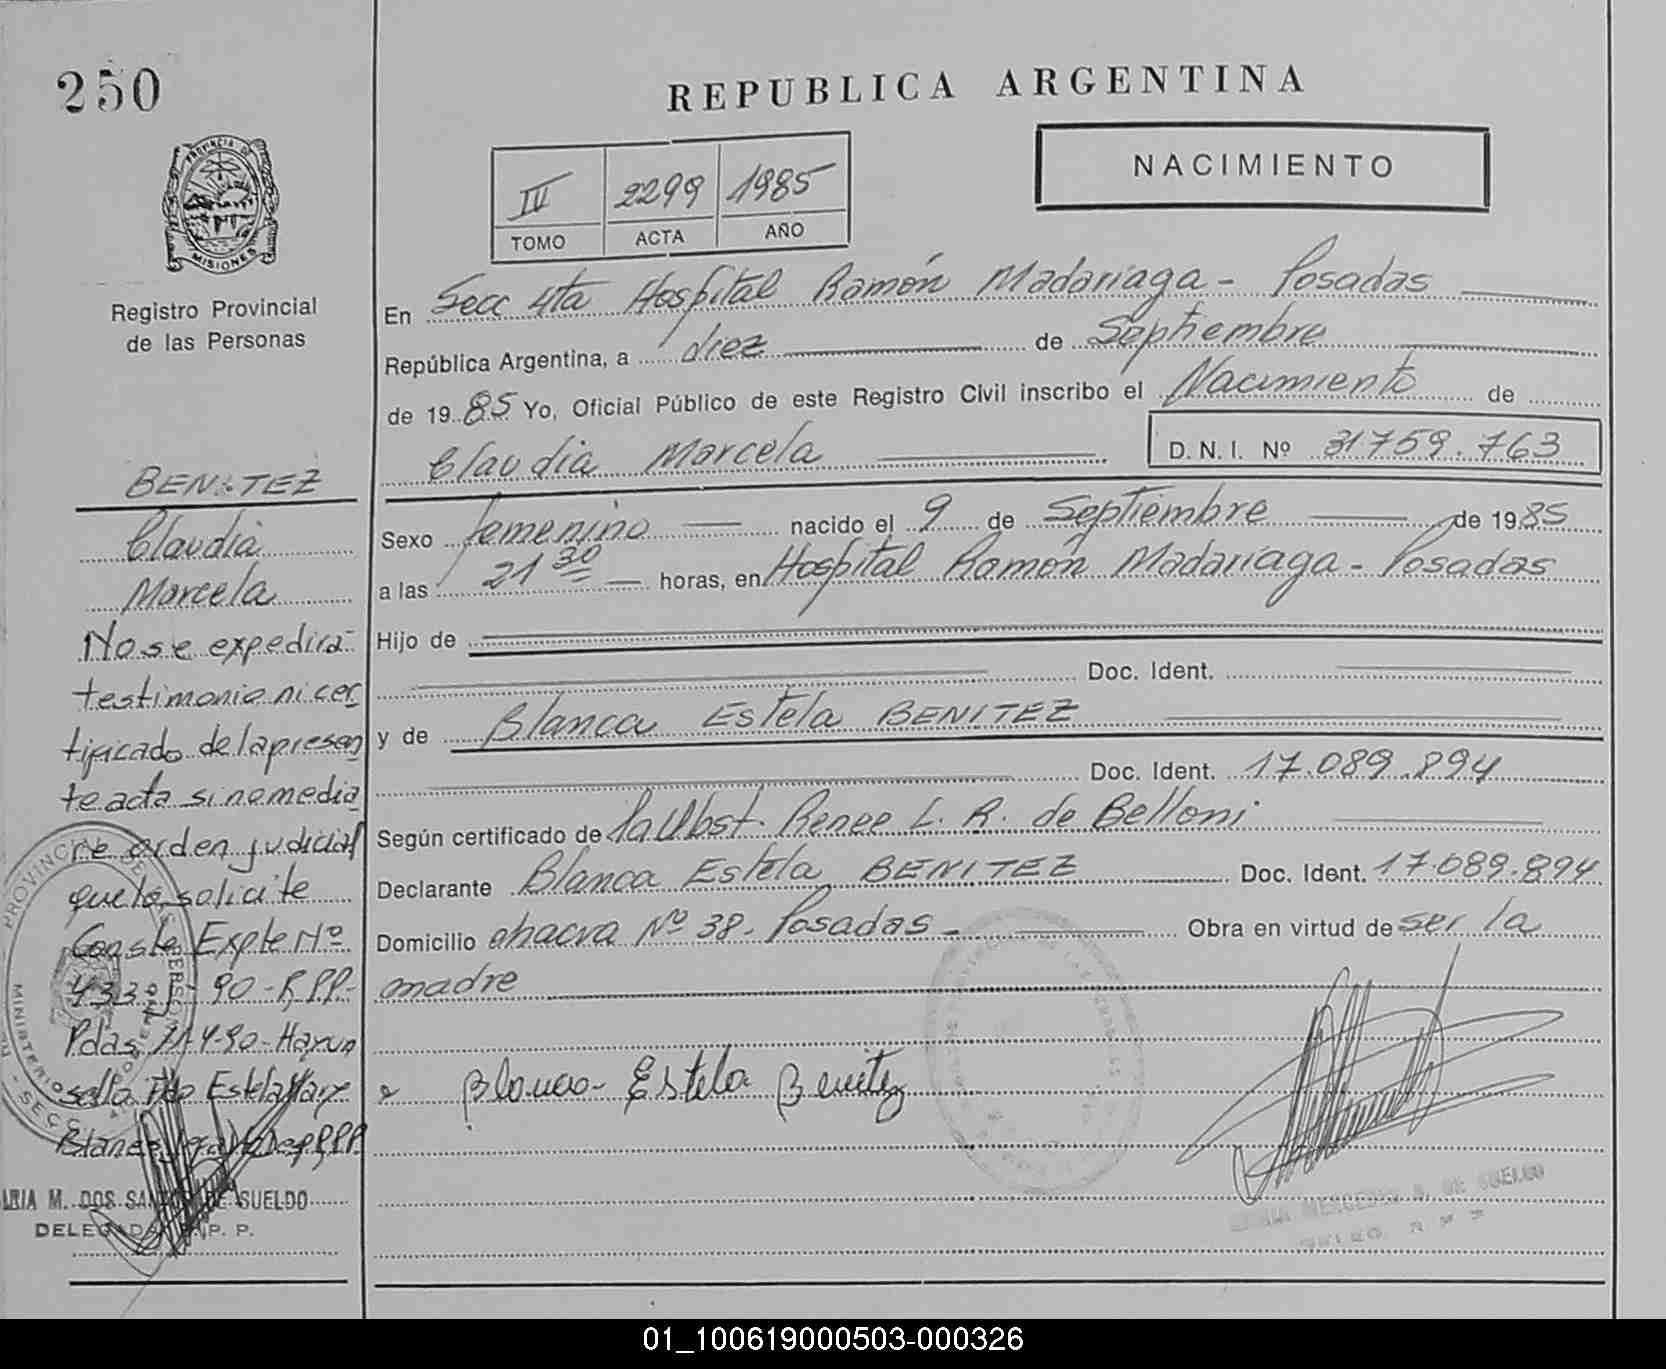 250
REPUBLICA ARGENTINA
NACIMIENTO
III 2299 1985
TOMO ACTA AÑO
PROVINCIA DE MISIONES
Registro Provincial
de las Personas
En Secc 4ta Hospital Ramón Madariaga - Posadas
República Argentina, a diez de Septiembre
de 19 85 Yo, Oficial Público de este Registro Civil inscribo el Nacimiento de
Claudia Marcela D. N. I. Nº 31759.763
Sexo femenino nacido el 9 de Septiembre de 1985
a las 21 30 horas, en Hospital Ramón Madariaga - Posadas
Hijo de
Doc. Ident.
y de Blanca Estela BENITEZ
Doc. Ident. 17.089.894
Según certificado de la Obst. Renee L. R. de Belloni
Declarante Blanca Estela BENITEZ Doc. Ident. 17.089.894
Domicilio chacra Nº 38. Posadas - Obra en virtud de ser la
madre
Blanca Estela Benitez
BENITEZ
Claudia
Marcela
No se expedirá
testimonio ni cer
tificado de la presen
te acta si no media
re orden judicial
que lo solicite
Conste Expte Nº
90-R.P.P.-
Pdas 11-4-90-Hay un
sello Fdo Estela
MARIA M. DOS SANTOS DE SUELDO
DELEGADA R. P. P.
01_100619000503-000326